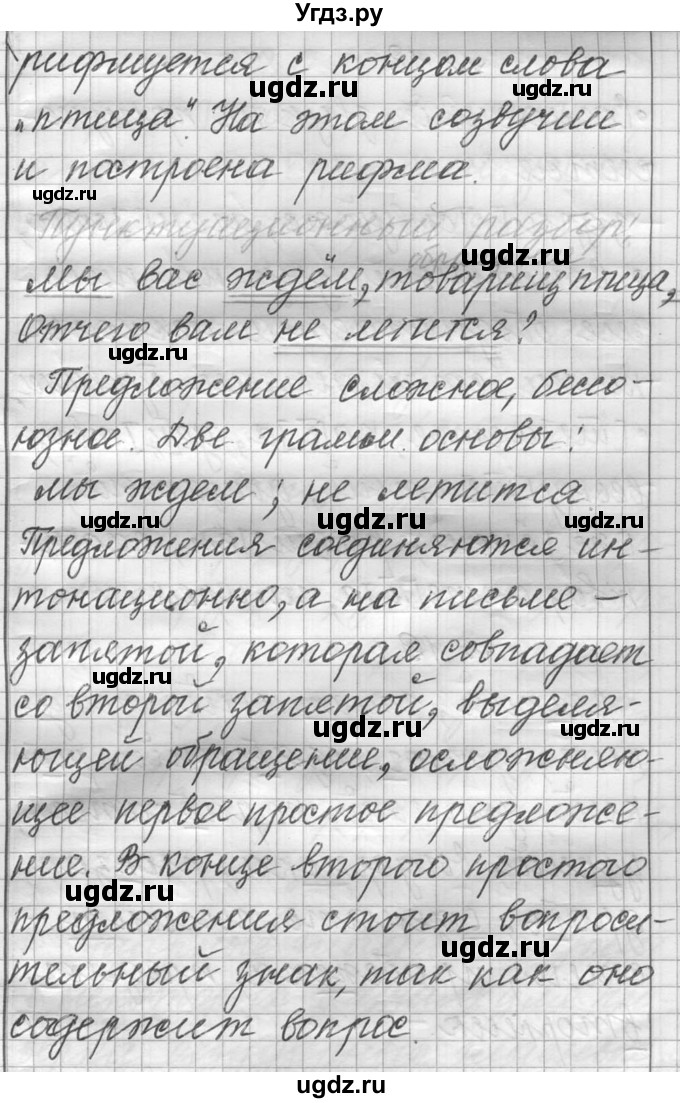 Угдз.ру
рифмуется с концом слова
„птица“. На этом созвучии
и построена рифма.
ugdz.ru
ugdz.ru
Пунктуационный разбор:
ugdz.ru
Мы вас ждём, товарищ птица,
Отчего вам не летится?
ugdz.ru
Предложение сложное, бессо-
юзное. Две грамм. основы:
мы ждем; не летится
ugdz.ru
ugdz.ru
ugdz.ru
Предложения соединяются ин-
тонационно, а на письме –
запятой, которая совпадает
ugdz.ru
со второй запятой, выделя-
ugdz.ru
ющей обращение, осложняю-
щее первое простое предложе-
ние. В конце второго простого
ugdz.ru
предложения стоит вопроси-
ugdz.ru
тельный знак, так как оно
содержит вопрос.
ugdz.ru